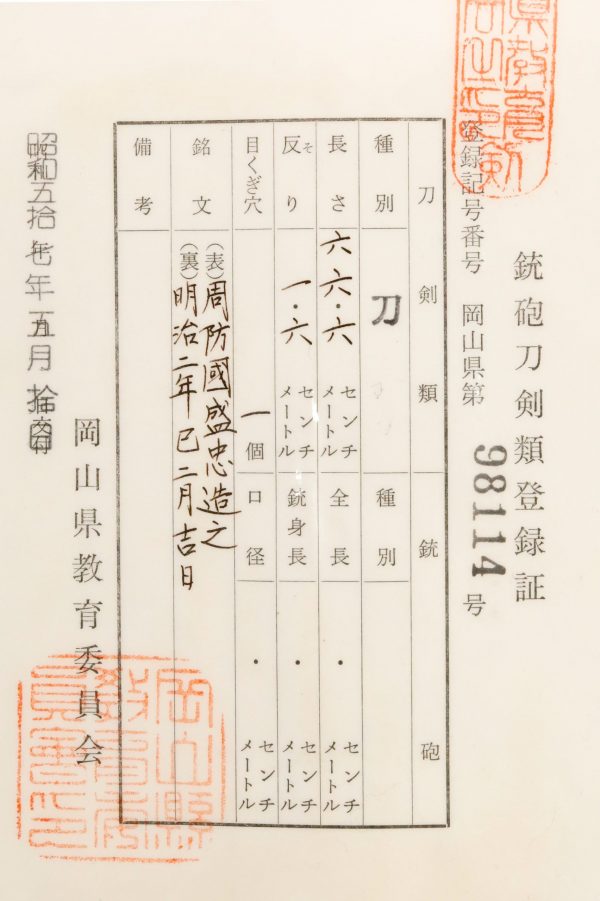 銃砲刀剣類登録証
登録記号番号 岡山県第 98114 号
刀剣類 銃砲
種別 刀 種別
長さ 六六・六 センチメートル 全長 ・ センチメートル
反り そ 一・六 センチメートル 銃身長 ・ センチメートル
目くぎ穴 一個 口径 ・ センチメートル
銘文 (表)周防國盛忠造之
(裏)明治二年巳二月吉日
備考
昭和五拾七年五月
岡山県教育委員会